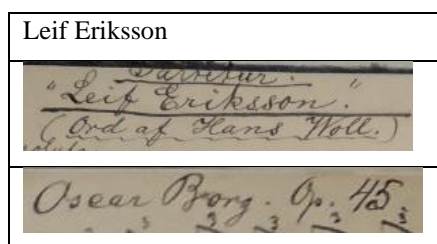 Leif Eriksson
Partitur.
"Leif Eriksson."
(Ord af Hans Woll.)
Oscar Borg. Op. 45.
3 3 3 3